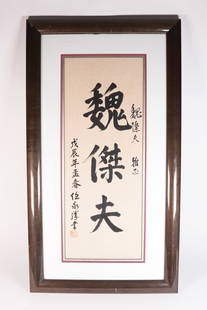 魏傑夫 雅正
魏傑夫
戊辰年孟春 任家溥書